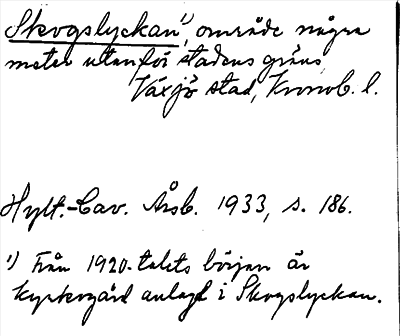 Skogslyckan¹), område några
meter utanför stadens gräns,
Växjö stad, Kronob. l.
Hylt.-Cav. Årsb. 1933, s. 186.
¹) Från 1920-talets början är
kyrkogård anlagd i Skogslyckan.